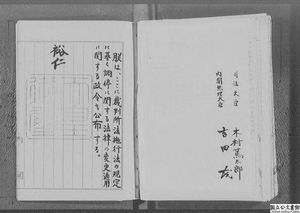 朕は、ここに裁判所法施行法の規定
に基く調停に関する法律の変更適用
に関する政令を公布する。
裕仁
内閣総理大臣
吉田茂
司法大臣
木村篤太郎
国立公文書館